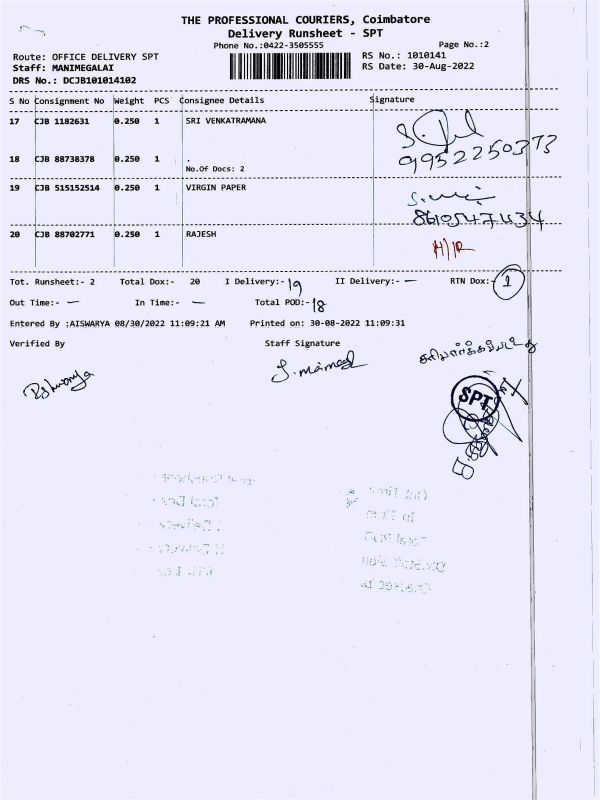 THE PROFESSIONAL COURIERS, Coimbatore
Delivery Runsheet - SPT
Phone No.:0422-3505555 Page No.:2
Route: OFFICE DELIVERY SPT RS No.: 1010141
Staff: MANIMEGALAI RS Date: 30-Aug-2022
DRS No.: DCJB101014102
S No Consignment No Weight PCS Consignee Details Signature
17 CJB 1182631 0.250 1 SRI VENKATRAMANA
9952250373
18 CJB 88738378 0.250 1 .
No.Of Docs: 2
19 CJB 515152514 0.250 1 VIRGIN PAPER
8610547434
20 CJB 88702771 0.250 1 RAJESH H/R
Tot. Runsheet:- 2 Total Dox:- 20 I Delivery:- 19 II Delivery:- — RTN Dox:- 1
Out Time:- — In Time:- — Total POD:- 18
Entered By :AISWARYA 08/30/2022 11:09:21 AM Printed on: 30-08-2022 11:09:31
Verified By Staff Signature
சரிபார்க்கப்பட்டது
SPT